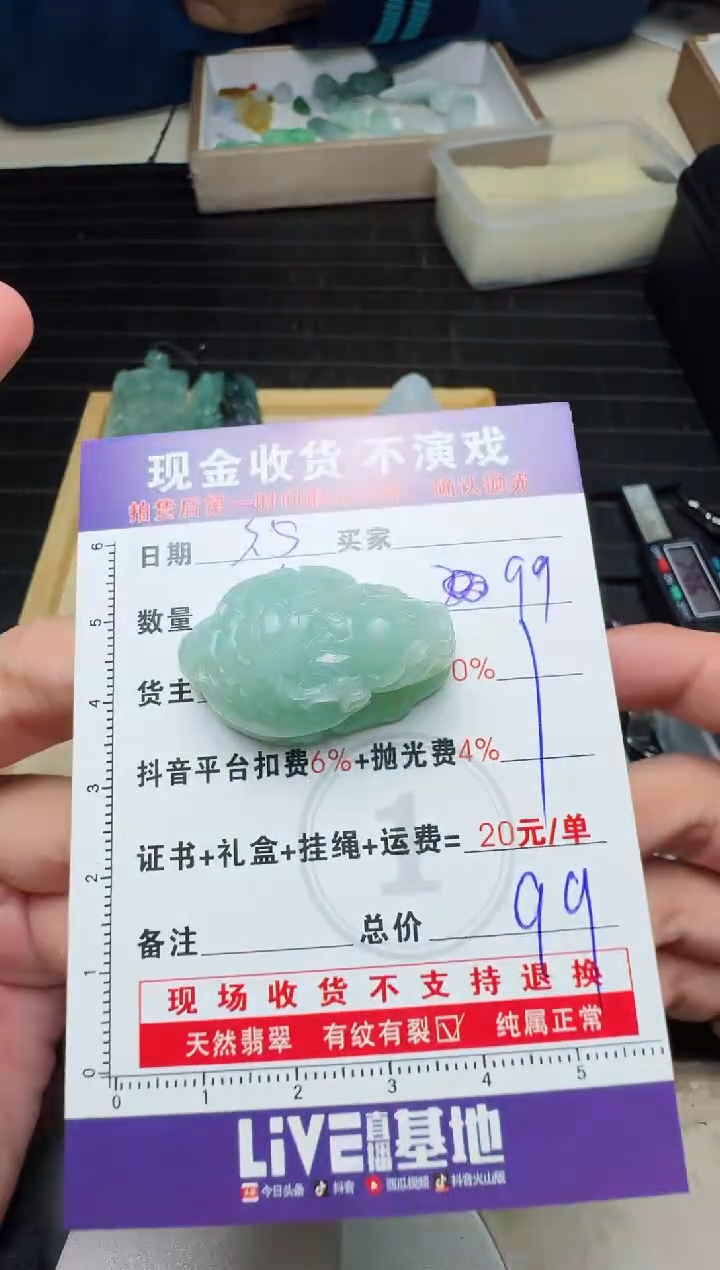 现金收货 不演戏
拍货后第一时间 确认抛光
日期 买家
数量 99
货主 0%
抖音平台扣费6%+抛光费4%
证书+礼盒+挂绳+运费= 20元/单
1
备注 总价 99
现场收货不支持退换
天然翡翠 有纹有裂☑ 纯属正常
6
5
4
3
2
1
0
0 1 2 3 4 5
LiVE直播基地
头条 今日头条 抖音 西瓜视频 抖音火山版